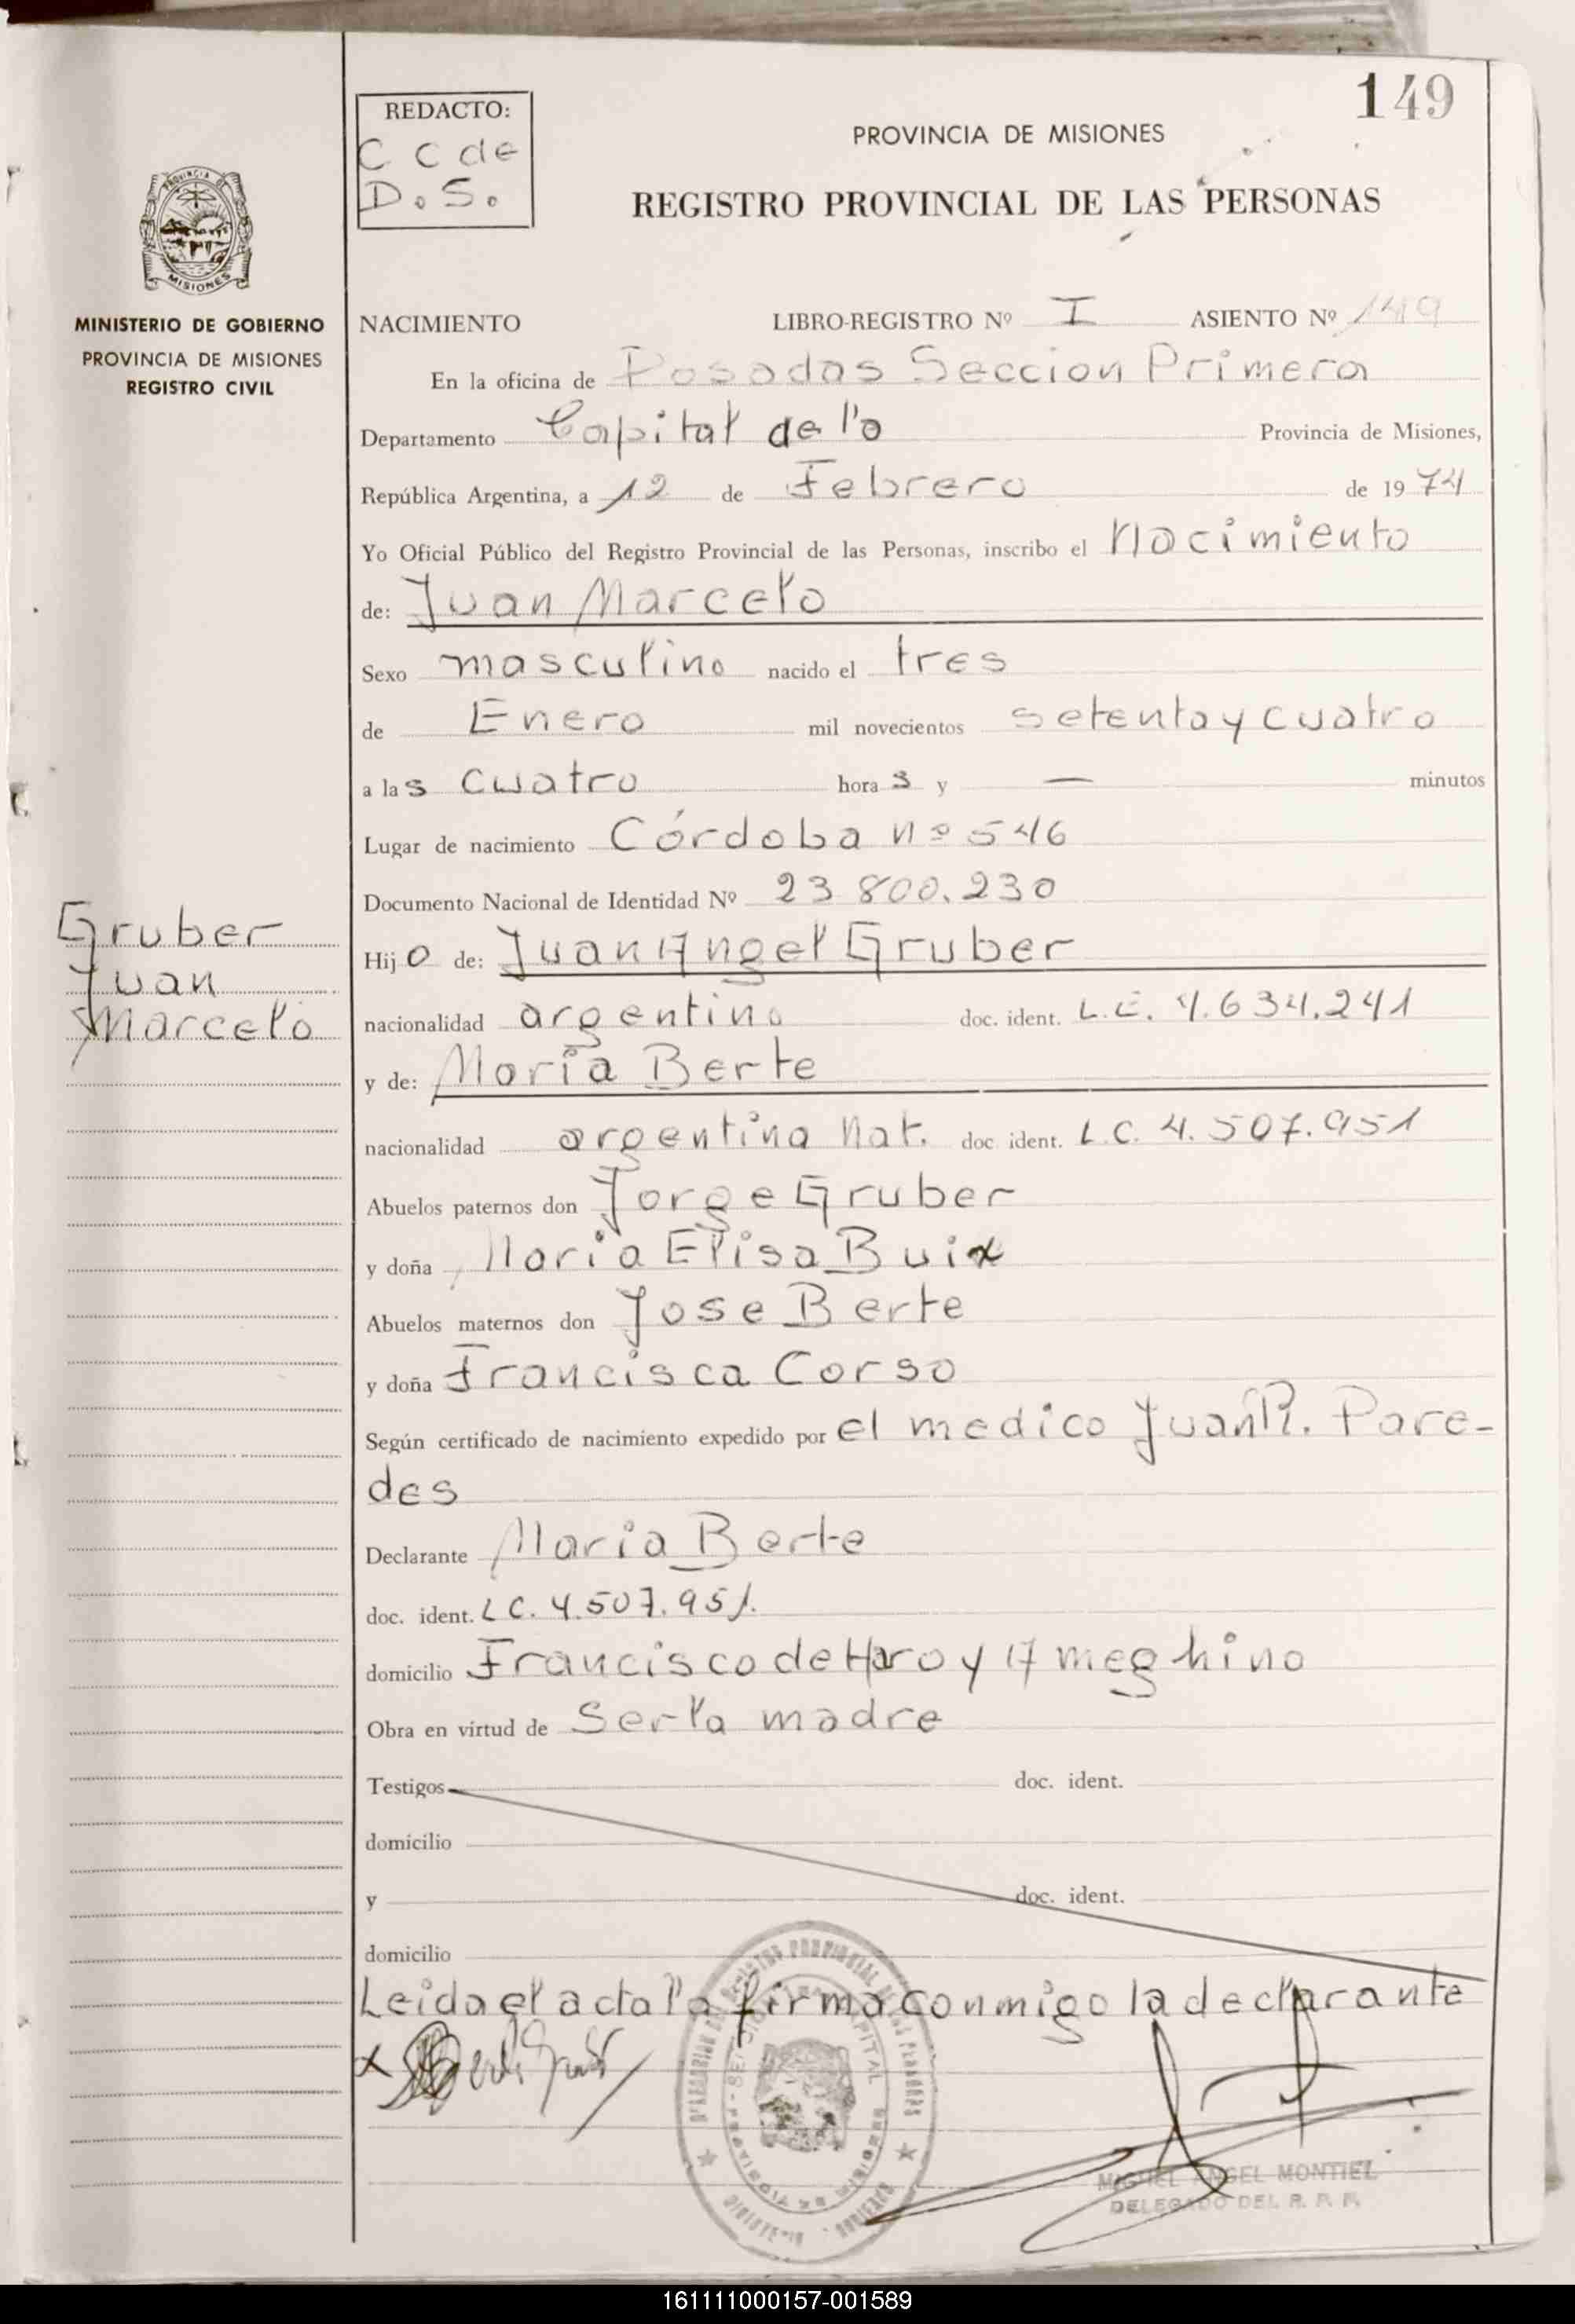 149
REDACTO:
C C de
D. S.
PROVINCIA DE MISIONES
REGISTRO PROVINCIAL DE LAS PERSONAS
PROVINCIA DE
MISIONES
MINISTERIO DE GOBIERNO
PROVINCIA DE MISIONES
REGISTRO CIVIL
NACIMIENTO LIBRO-REGISTRO Nº I ASIENTO Nº 149
En la oficina de Posadas Seccion Primera
Departamento Capital de la Provincia de Misiones,
República Argentina, a 12 de Febrero de 1974
Yo Oficial Público del Registro Provincial de las Personas, inscribo el Nacimiento
de: Juan Marcelo
Sexo masculino nacido el tres
de Enero mil novecientos setenta y cuatro
a las cuatro horas y — minutos
Lugar de nacimiento Córdoba nº 546
Documento Nacional de Identidad Nº 23 800.230
Gruber
Juan
Marcelo
Hijo de: Juan Angel Gruber
nacionalidad argentino doc. ident. L.E. 4.634.241
y de: María Berte
nacionalidad argentina Nat. doc. ident. L.C. 4.507.951
Abuelos paternos don Jorge Gruber
y doña Maria Elisa Buix
Abuelos maternos don Jose Berte
y doña Francisca Corso
Según certificado de nacimiento expedido por el medico Juan R. Pare-
des
Declarante Maria Berte
doc. ident. LC. 4.507.951.
domicilio Francisco de Haro y Ameghino
Obra en virtud de Ser la madre
Testigos doc. ident.
domicilio
y doc. ident.
domicilio
Leida el acta la firma conmigo la declarante
x
MIGUEL ANGEL MONTIEL
DELEGADO DEL R. P. P.
161111000157-001589